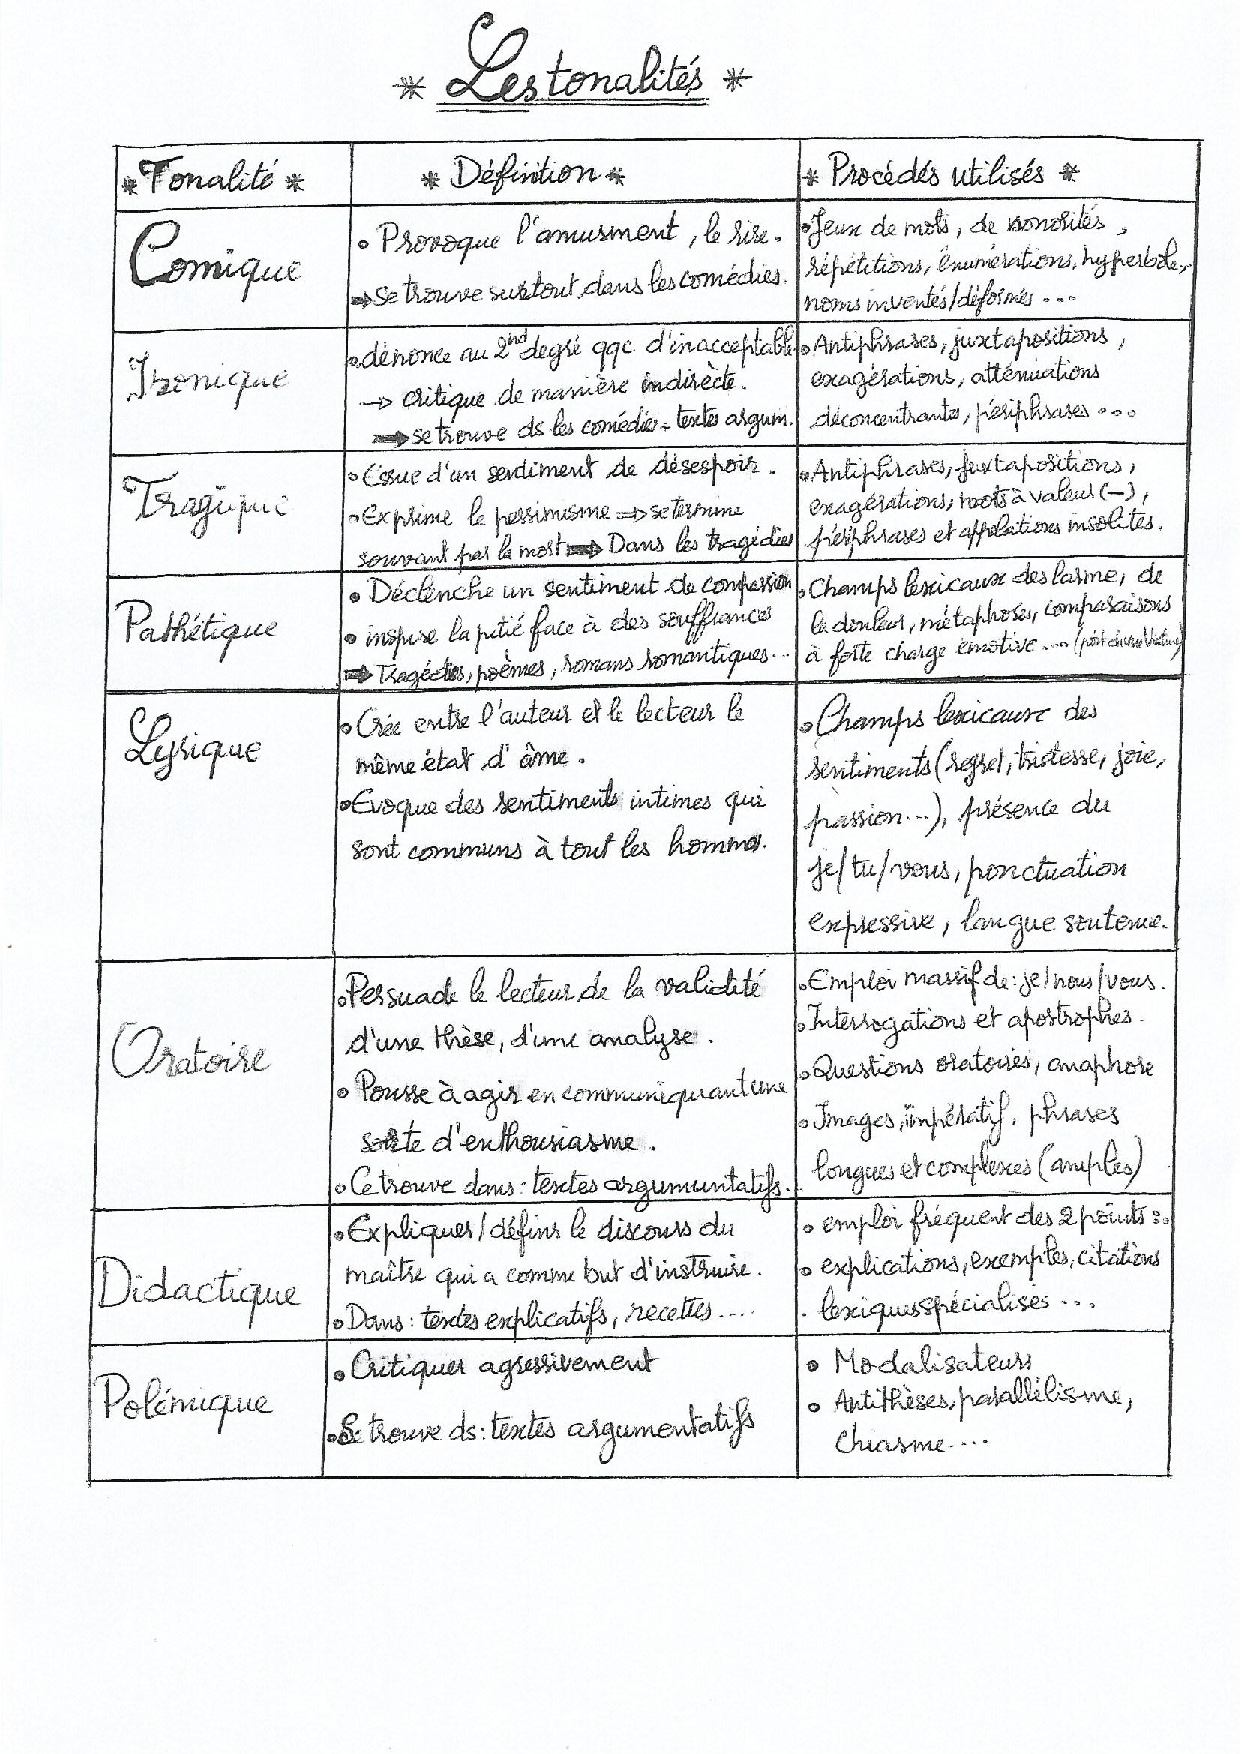 * Les tonalités *
* Tonalité *
* Définition *
* Procédés utilisés *
Comique
• Provoque l'amusment, le rire.
⇒ se trouve surtout dans les comédies.
• Jeux de mots, de sonorités,
répétitions, énumérations, hyperbole,
noms inventés/déformés ...
Ironique
• dénonce au 2nd degré qqc d'inacceptable
→ critique de manière indirècte.
⇒ se trouve ds les comédies - textes argum.
• Antiphrases, juxtapositions,
exagérations, atténuations
déconcentrante, périphrases ...
Tragique
• Essue d'un sentiment de désespoir.
• Exprime le pessimisme ⇒ se termine
souvant par la mort ⇒ Dans les tragédies
• Antiphrases, juxtapositions,
exagérations, mots à valeur (-),
périphrases et appelations insolites.
Pathétique
• Déclenche un sentiment de compassion
• inspire la pitié face à des souffrances
⇒ Tragédies, poèmes, romans romantiques...
• Champs lexicaux des larme, de
la douleur, métaphores, comparaisons
à forte charge émotive ...
Lyrique
• Crée entre l'auteur et le lecteur le
même état d'âme.
• Evoque des sentiments intimes qui
sont communs à tout les hommes.
• Champs lexicaux des
sentiments (regret, tristesse, joie,
passion...), présence du
je/tu/vous, ponctuation
expressive, langue soutenue.
Oratoire
• Persuade le lecteur de la validité
d'une thèse, d'une analyse.
• Pousse à agir en communiquant une
sorte d'enthousiasme.
• Ce trouve dans : textes argumuntatifs.
• Emploi massif de : je/nous/vous.
• Interrogations et apostrophes.
• Questions oratoires, anaphore
• Images, impératif, phrases
longues et complexes (amples)
Didactique
• Expliques/définr le discours du
maître qui a comme but d'instruire.
• Dans : textes explicatifs, recettes....
• emploi fréquent des 2 points :.
• explications, exemples, citations
. lexiques spécialises ...
Polémique
• Critiquer agressivement
• Se trouve ds : textes argumentatifs
• Modalisateurs
• Antithèses, parallélisme,
chiasme....